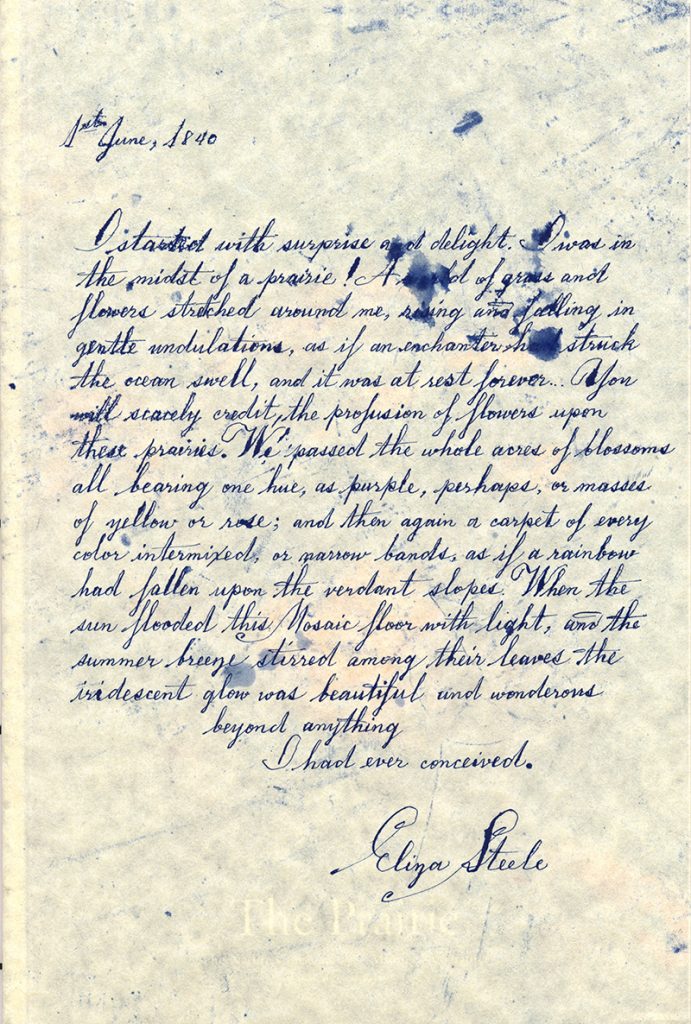 1st June, 1840
I started with surprise and delight. I was in
the midst of a prairie! A world of grass and
flowers stretched around me, rising and falling in
gentle undulations, as if an enchanter had struck
the ocean swell, and it was at rest forever... You
will scacely credit, the profusion of flowers upon
these prairies. We passed the whole acres of blossoms
all bearing one hue, as purple, perhaps, or masses
of yellow or rose; and then again a carpet of every
color intermixed, or narrow bands, as if a rainbow
had fallen upon the verdant slopes. When the
sun flooded this Mosaic floor with light, and the
summer breeze stirred among their leaves the
iridescent glow was beautiful and wonderous
beyond anything
I had ever conceived.
Eliza Steele
The Prairie